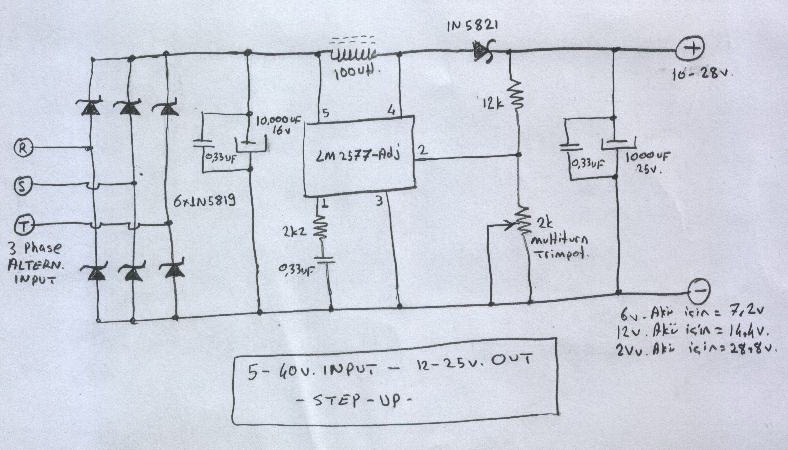 1N5821
+
100uH.
10-28v.
5
4
12k
10,000uF
16v
0,33uF
R
LM2577-Adj
2
0,33uF
1000uF
25v.
S
6x1N5819
1
3
T
2k2
2k
multiturn
Trimpot.
3 Phase
ALTERN.
INPUT
0,33uF
-
6v. Akü için = 7,2v
12v. Akü için = 14,4v.
2Vv. Akü için = 28,8v.
5-40v. INPUT - 12-25v. OUT
- STEP-UP -